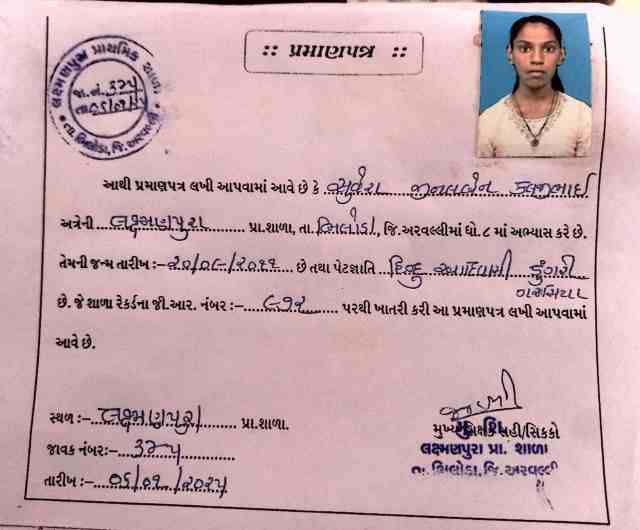 :: પ્રમાણપત્ર ::
લક્ષ્મણપુરા પ્રાથમિક શાળા
જા.નં. ૩૨૫
તા. ૦૬/૦૧/૨૫
તા.ભિલોડા, જિ.અરવલ્લી
આથી પ્રમાણપત્ર લખી આપવામાં આવે છે કે સુવેરા જીનલબેન કવજીભાઈ
અત્રેની લક્ષ્મણપુરા પ્રા.શાળા, તા. ભિલોડા, જિ.અરવલ્લીમાં ધો.૮ માં અભ્યાસ કરે છે.
તેમની જન્મ તારીખ :- ૨૦/૦૯/૨૦૧૧ છે તથા પેટાજ્ઞાતિ હિન્દુ આદિવાસી ડુંગરી
ગરાસિયા
છે. જે શાળા રેકર્ડના જી.આર. નંબર :- ૯૧૨ પરથી ખાતરી કરી આ પ્રમાણપત્ર લખી આપવામાં
આવે છે.
સ્થળ :- લક્ષ્મણપુરા પ્રા.શાળા.
જાવક નંબર:- ૩૨૫
તારીખ :- ૦૬/૦૧/૨૦૨૫
મુખ્ય શિક્ષક સહી/સિક્કો
લક્ષ્મણપુરા પ્રા. શાળા
તા. ભિલોડા, જિ. અરવલ્લી